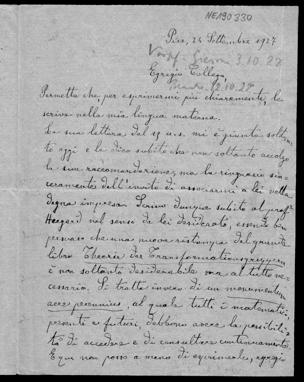 NE190330
Pisa, 24 Settembre 1927
3.10.27
Egregio Collega,
12.10.27
Permetta che, per esprimermi più chiaramente, le
scriva nella mia lingua materna.
La sua lettera del 19 u.s. mi è giunta soltan-
to oggi e le dico subito che non soltanto accolgo
la sua raccomandazione, ma la ringrazio since-
ramente dell'invito di associarmi a lei nella
degna impresa. Scrivo dunque subito al prof.
Heegard nel senso da lei desiderato, essendo ben
persuaso che una nuova ristampa del grande
libro Theorie der Transformationsgruppen
è non soltanto desiderabile ma al tutto ne-
cessaria. Si tratta invero di un monumentum
aere perennius, al quale tutti i matematici,
presenti e futuri, debbono avere la possibili-
tà di accedere e di consultare continuamente.
E qui non posso a meno di esprimerle, egregio